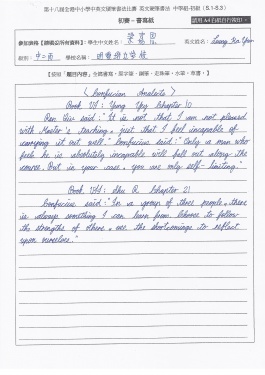 第十八屆全港中小學中英文硬筆書法比賽 英文硬筆書法 中學組-初級 (S.1-S.3)
初賽－書寫紙
請用A4白紙自行列印。
參加資格【請填妥所有資料】學生中文姓名：梁嘉
英文姓名：Leung Ka
級別：中二 學校名稱：
< Confucian Analects >
Book VI: Yong Yey Chapter 10
Ran Qiu said: "It is not that I am not pleased
with Master's teaching, just that I feel incapable of
carrying it out well." Confucius said: "Only a man who
feels he is absolutely incapable will fall out along the
course. But in your case, you are only self-limiting."
Book VII: Shu R Chapter 21
Confucius said: "In a group of three people, there
is always something I can learn from. Choose to follow
the strengths of others, use the shortcomings to reflect
upon ourselves."